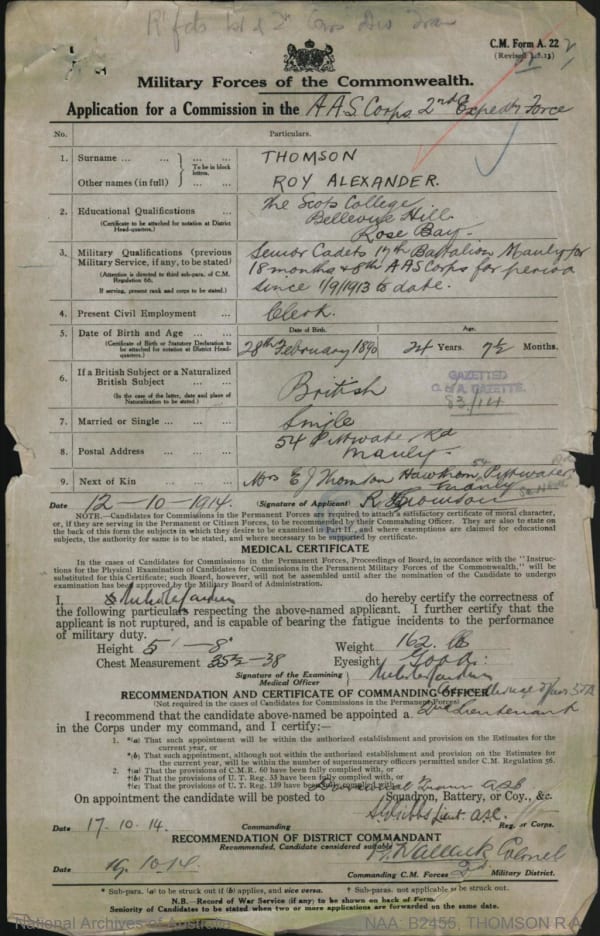 C.M. Form A. 22
Military Forces of the Commonwealth.
Application for a Commission in the A.A.S. Corps 2nd Expedy Force
No. Particulars.
1. Surname ... ... THOMSON
To be in block letters.
Other names (in full) ROY ALEXANDER.
2. Educational Qualifications ... The Scots College
(Certificate to be attached for notation at District Head-quarters.) Bellevue Hill.
Rose Bay.
3. Military Qualifications (previous Senior Cadets 17th Battalion Manly for
Military Service, if any, to be stated) 18 months & 8th AAS Corps for period
(Attention is directed to third sub-para. of C.M. Regulation 66. since 1/9/1913 to date.
If serving, present rank and corps to be stated.)
4. Present Civil Employment ... Clerk.
Date of Birth. Age.
5. Date of Birth and Age ... ... 28th February 1890 24 Years. 7½ Months.
(Certificate of Birth or Statutory Declaration to be attached for notation at District Head-quarters.)
6. If a British Subject or a Naturalized
British Subject ... ... British
(In the case of the latter, date and place of Naturalization to be stated.)
GAZETTED
C. of A. GAZETTE.
83/14
7. Married or Single ... ... Single
8. Postal Address ... ... 54 Pittwater Rd
Manly.
9. Next of Kin ... ... Mrs E J Thomson 54 Pittwater
Manly
Date 12-10-1914. (Signature of Applicant) R A Thomson
NOTE.—Candidates for Commissions in the Permanent Forces are required to attach a satisfactory certificate of moral character,
or, if they are serving in the Permanent or Citizen Forces, to be recommended by their Commanding Officer. They are also to state on
the back of this form the subjects in which they desire to be examined in Part II., and where exemptions are claimed for educational
subjects, the authority for same is to be stated, and where necessary to be supported by certificate.
MEDICAL CERTIFICATE
In the cases of Candidates for Commissions in the Permanent Forces, Proceedings of Board, in accordance with the "Instruc-
tions for the Physical Examination of Candidates for Commissions in the Permanent Military Forces of the Commonwealth," will be
substituted for this Certificate; such Board, however, will not be assembled until after the nomination of the Candidate to undergo
examination has been approved by the Military Board of Administration.
I, do hereby certify the correctness of
the following particulars respecting the above-named applicant. I further certify that the
applicant is not ruptured, and is capable of bearing the fatigue incidents to the performance
of military duty.
Height 5' - 8" Weight 162. lb
Chest Measurement 35½-38 Eyesight Good.
Signature of the Examining
Medical Officer
RECOMMENDATION AND CERTIFICATE OF COMMANDING OFFICER
(Not required in the cases of Candidates for Commissions in the Permanent Forces)
I recommend that the candidate above-named be appointed a 2nd Lieutenant
in the Corps under my command, and I certify:—
1. *(a) That such appointment will be within the authorized establishment and provision on the Estimates for the
current year, or
*(b) That such appointment, although not within the authorized establishment and provision on the Estimates for
the current year, will be within the number of supernumerary officers permitted under C.M. Regulation 56.
2. †(a) That the provisions of C.M.R. 60 have been fully complied with, or
†(b) That the provisions of U.T. Reg. 33 have been fully complied with, or
†(c) That the provisions of U.T. Reg. 139 have been fully complied with.
On appointment the candidate will be posted to Squadron, Battery, or Coy., &c.
Lieut. ASC.
Date 17.10.14. Commanding Reg. or Corps.
RECOMMENDATION OF DISTRICT COMMANDANT
Recommended, Candidate considered suitable
Date 19.10.14. Wallack Colonel
Commanding C.M. Forces 2nd Military District.
* Sub-para. (a) to be struck out if (b) applies, and vice versa. † Sub-paras. not applicable to be struck out.
N.B.—Record of War Service (if any) to be shown on back of Form.
Seniority of Candidates to be stated when two or more applications are forwarded on the same date.
National Archives of Australia NAA: B2455, THOMSON R A